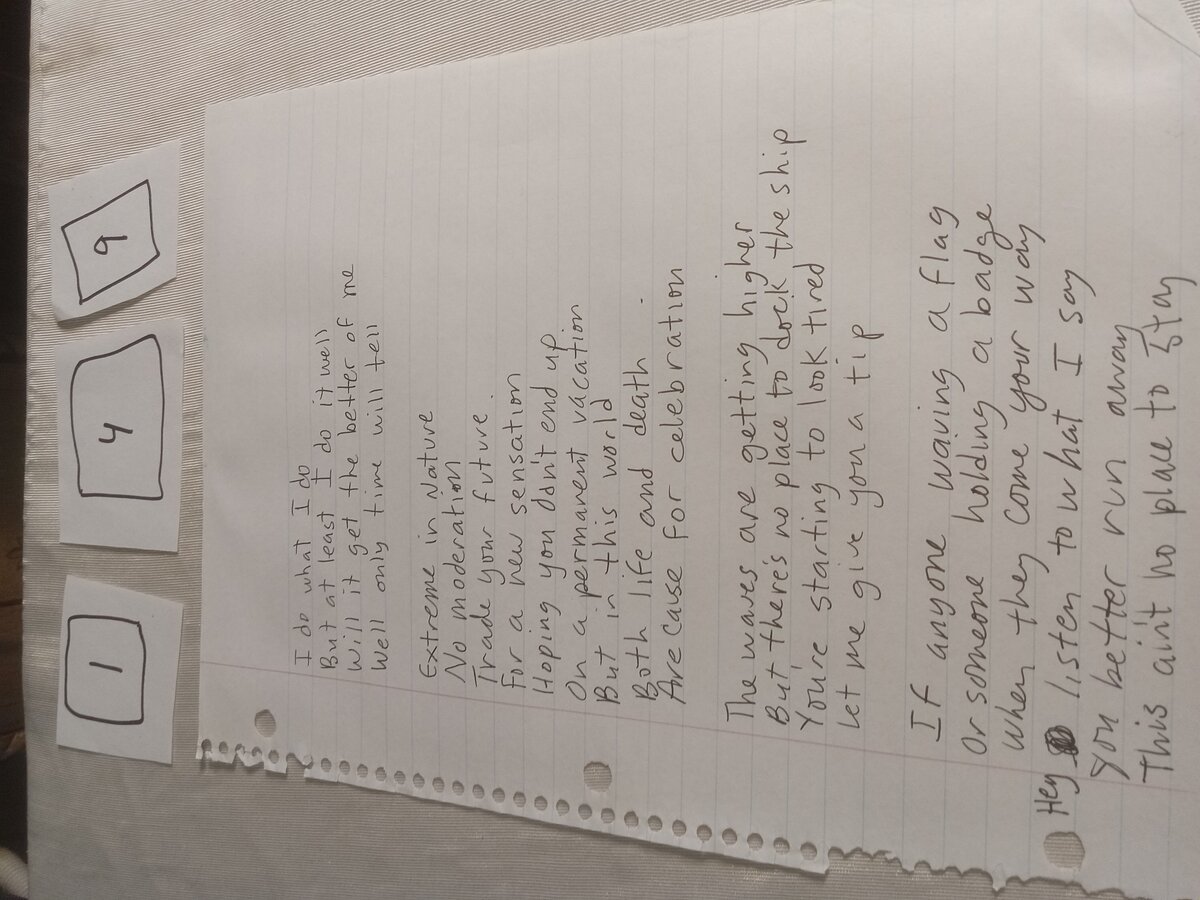 1
4
9
I do what I do
But at least I do it well
Will it get the better of me
Well only time will tell
Extreme in Nature
No moderation
Trade your future.
For a new sensation
Hoping you don't end up
On a permanent vacation
But in this world
Both life and death.
Are cause for celebration
The waves are getting higher
But there's no place to dock the ship
You're starting to look tired
Let me give you a tip
If anyone waving a flag
Or someone holding a badge
When they come your way
Hey listen to what I say
You better run away
This ain't no place to stay